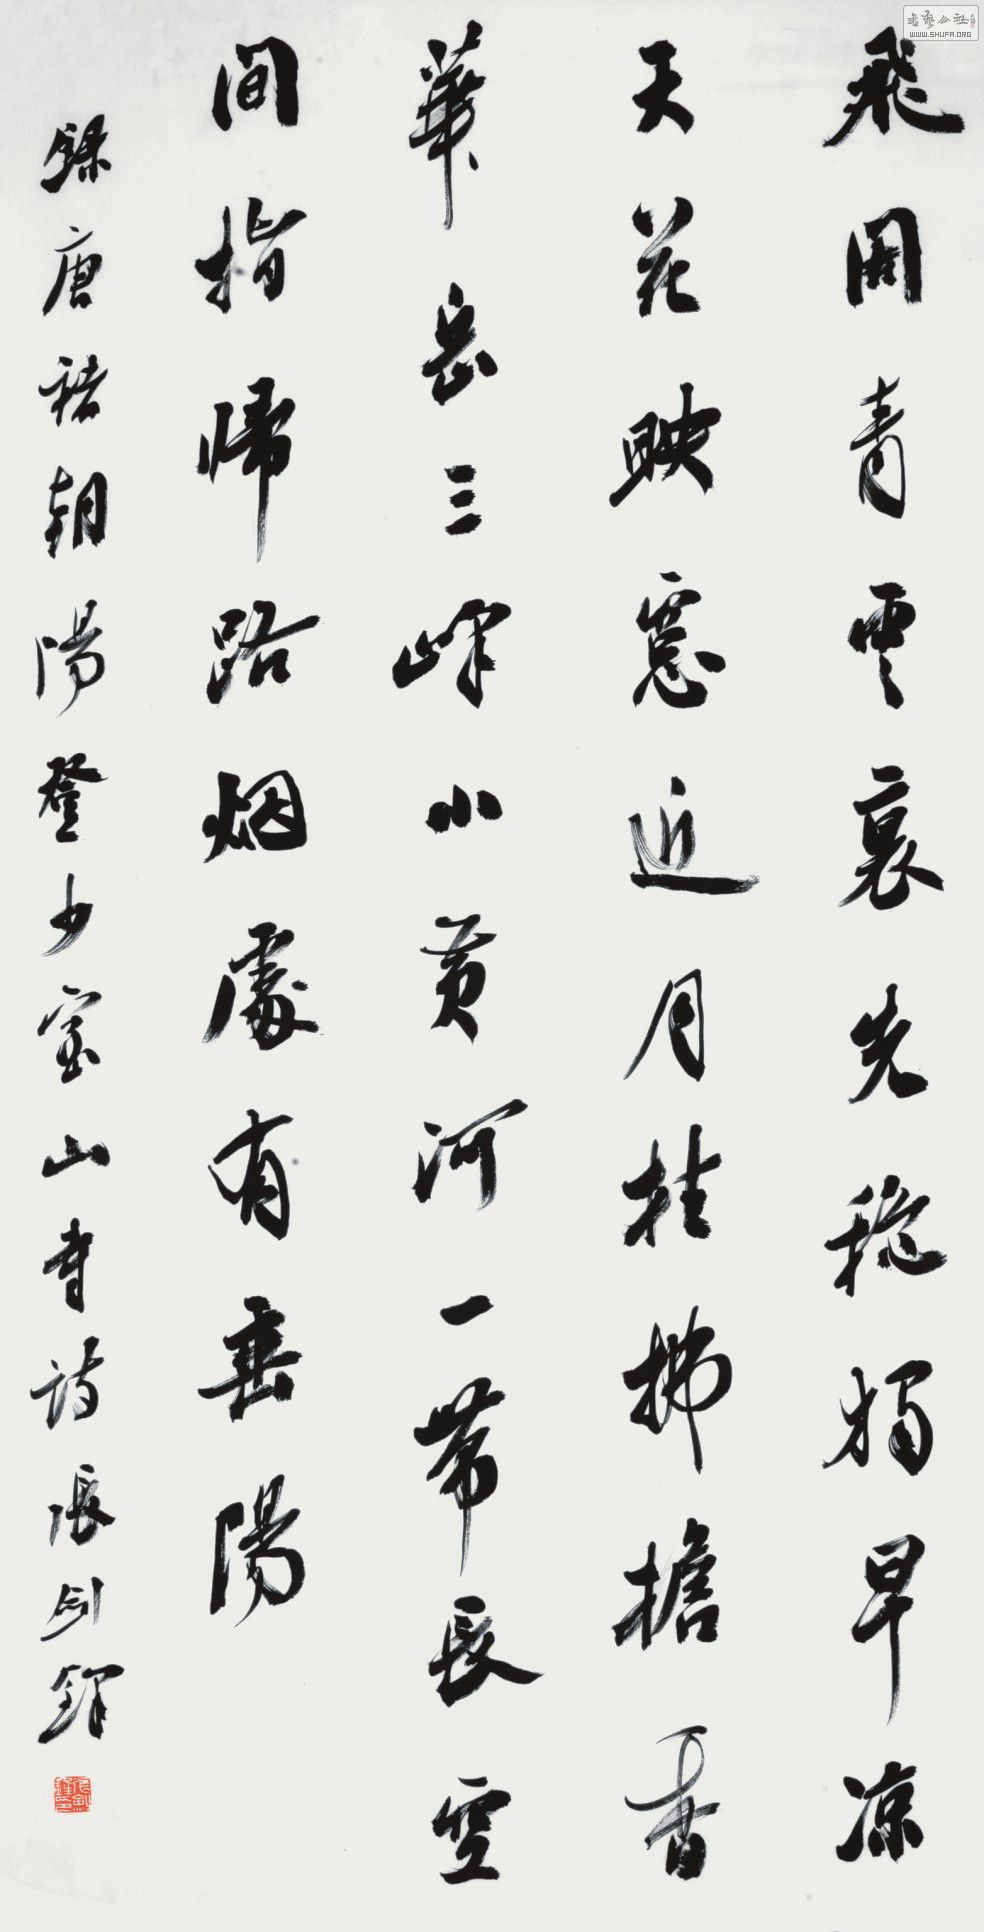 飛閣青雲裏先秋獨早凉
天花映窓近月桂拂檐香
華岳三峰小黄河一帶長空
間指歸路烟處有垂陽
錄唐褚朝陽登少室山寺詩張剑鋒
書藝公社
WWW.SHUFA.ORG